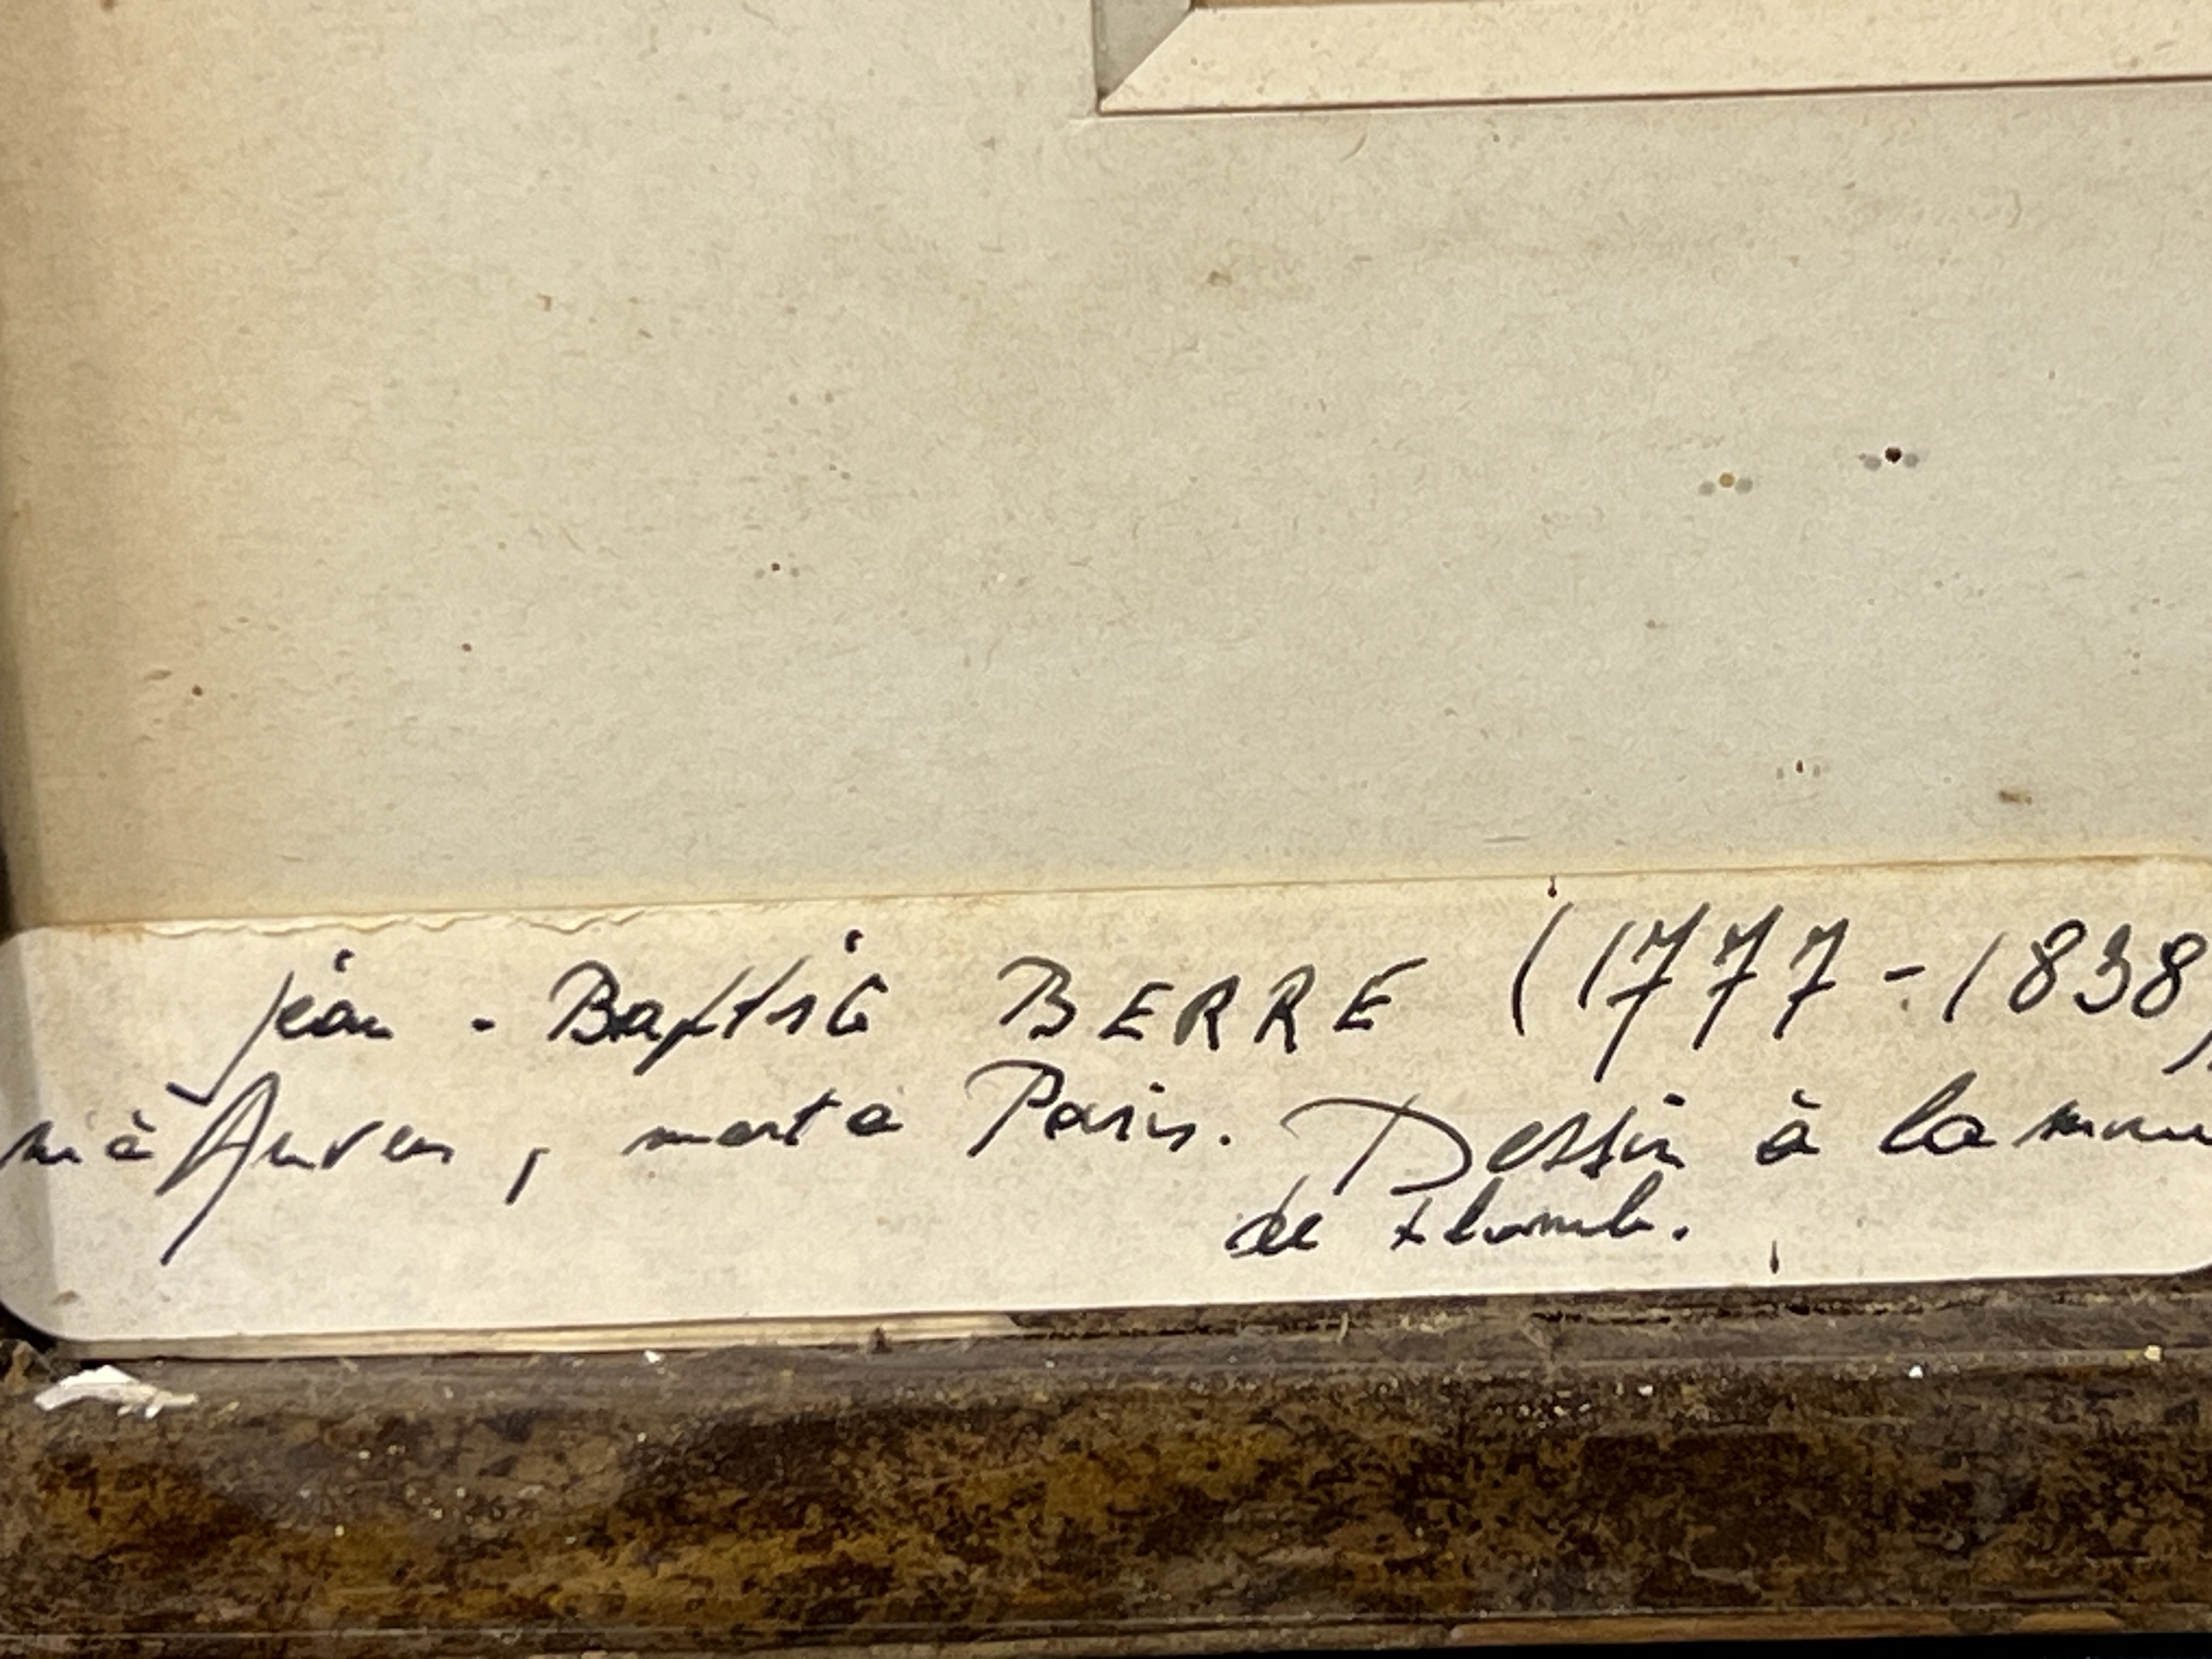 Jean - Baptiste BERRE (1777-1838)
né à Anvers, mort à Paris. Dessin à la mine
de plomb.